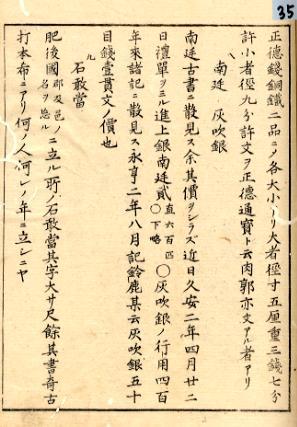 35
正德錢銅鐵二品ニノ各大小アリ大者徑寸五厘重三錢七分
許小者徑九分許文ヲ正德通寶ト云肉郭亦文アル者アリ
南廷 灰吹銀
南廷古書ニ散見ス余其價ヲシラズ近日久安二年四月廿二
日禮單ヲミル進上銀南廷貳 直六百匹 〇下略 〇灰吹銀ノ行用四百
年來諸記ニ散見ス永亨二年八月記鈴鹿某云灰吹銀五十
目錢壹貫文ノ價也
九 石敢當
肥後國 郡及邑ノ名ヲ逸ル ニ立ル所ノ石敢當其字大サ尺餘其書奇古
打本布ニアリ何ノ人何レノ年ニ立シニヤ